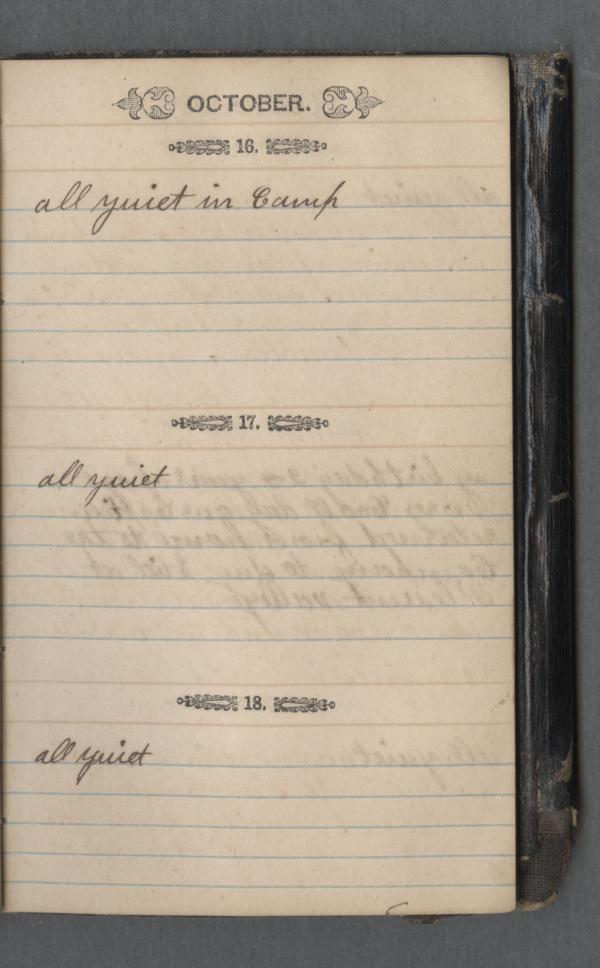 OCTOBER.
16.
all quiet in Camp
17.
all quiet
18.
all quiet